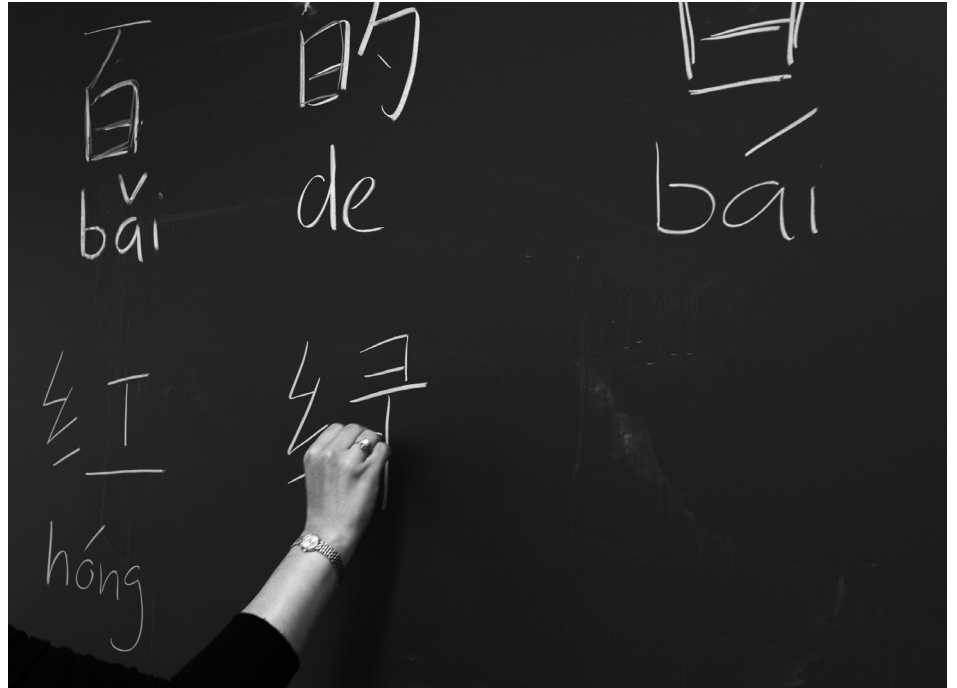 百 的 白
bǎi de bái
红 绿
hóng